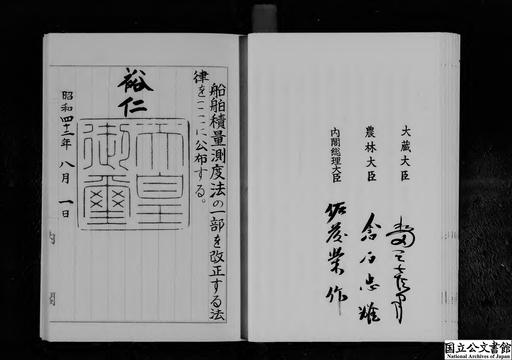 大蔵大臣 水田三喜男
農林大臣 倉石忠雄
内閣総理大臣 佐藤榮作
船舶積量測度法の一部を改正する法
律をここに公布する。
裕仁
天皇
御璽
昭和四十二年 八月 一日
内閣
国立公文書館
National Archives of Japan